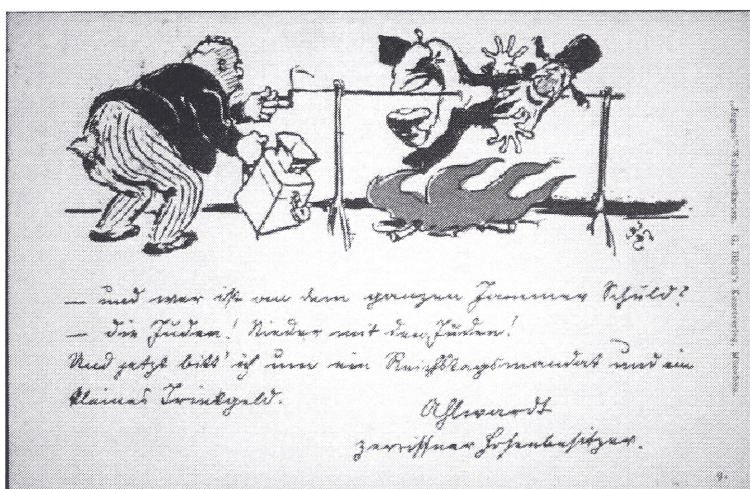 – und wer ist an dem ganzen Jammer Schuld?
– die Juden! Nieder mit den Juden!
Und jetzt bitt' ich um ein Reichstagsmandat und ein
kleines Trinkgeld.
Ahlwardt
zerrissner Hosenbesitzer.
„Jugend“ G. Hirth's Kunstverlag, München.
9.